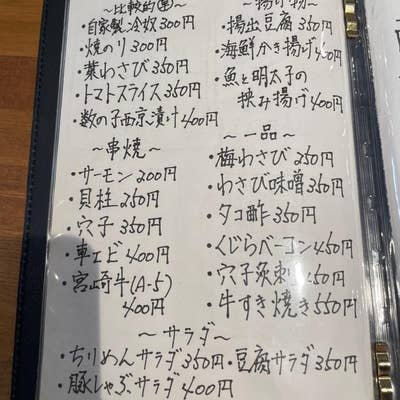 ～比較的(早)～
・自家製冷奴300円
・焼のり300円
・葉わさび350円
・トマトスライス350円
・数の子西京漬け400円
～串焼～
・サーモン200円
・貝柱250円
・穴子350円
・車エビ400円
・宮崎牛(A-5)
400円
～揚げ物～
・揚出豆腐350円
・海鮮かき揚げ400円
・魚と明太子の
挟み揚げ400円
～一品～
・梅わさび250円
・わさび味噌350円
・タコ酢350円
・くじらベーコン450円
・穴子灸刺 450円
・牛すき焼き550円
～サラダ～
・ちりめんサラダ350円・豆腐サラダ350円
・豚しゃぶサラダ400円